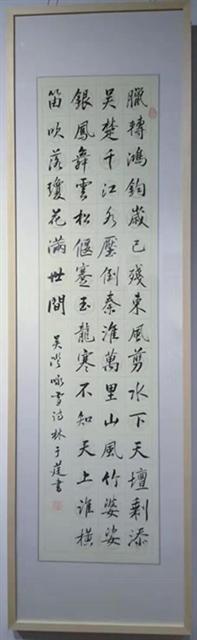 臘轉鴻鈞歲已殘東風剪水下天壇剩添
吴楚千江水壓倒秦淮萬里山風竹婆娑
銀鳳舞雲松偃蹇玉龍寒不知天上誰橫
笛吹落瓊花滿世間
吴澄咏雪詩林于莲書